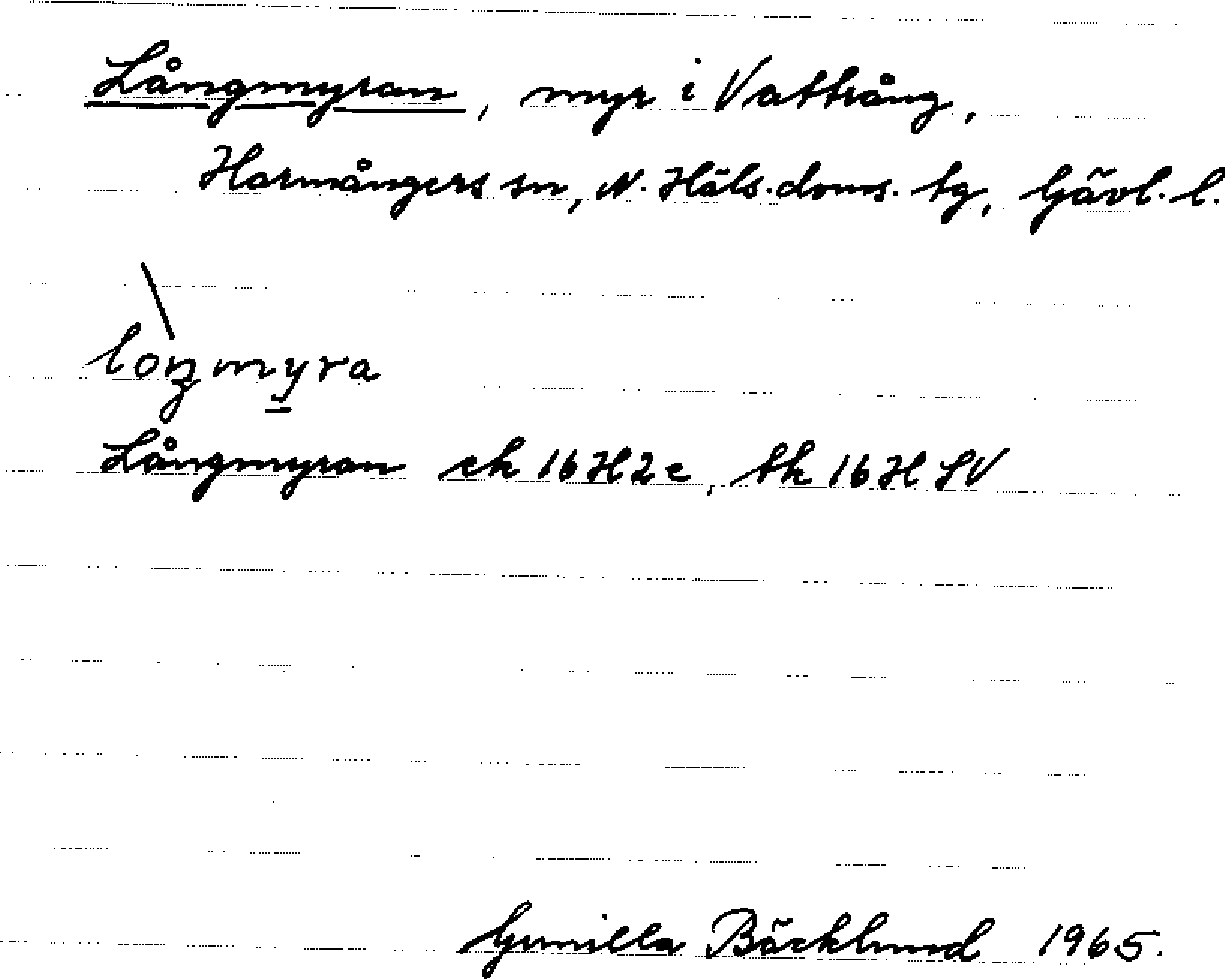 Långmyran, myr i Vattrång,
Harmångers sn, N. Häls. doms. tg, Gävl. l.
lòŋmy̠ra
Långmyran ek 16H2c, tk 16H SV
Gunilla Bäcklund 1965.